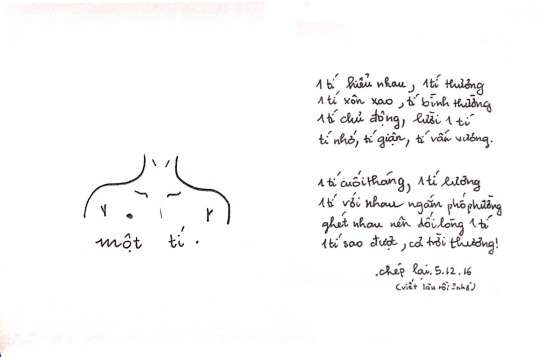 một tí.
1 tí hiểu nhau, 1 tí thương
1 tí xôn xao, tí bình thường
1 tí chủ động, lười 1 tí
tí nhớ, tí giận, tí vấn vương.
1 tí cuối tháng, 1 tí lương
1 tí với nhau ngắm phố phường
ghét nhau nên dối lòng 1 tí
1 tí sao được, cả trời thương!
.chép lại. 5.12.16
(viết lâu rồi nhớ)